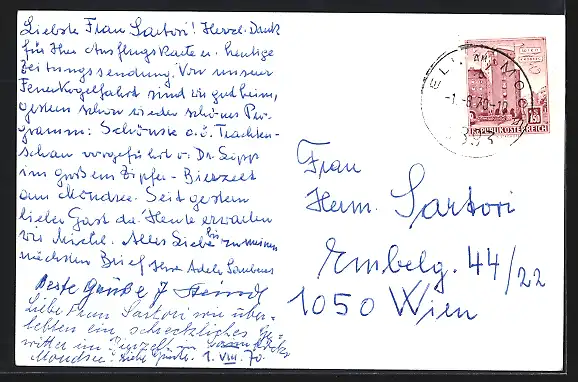 Liebste Frau Sartori! Herzl. Dank
für Ihre Ausflugskarte u. heutige
Zeitungssendung. Von unserer
Feuerkogelfahrt sind wir gut heim,
gestern schon wieder schönes Pro-
gramm: Schönste o.ö. Trachten-
schau vorgeführt v. Dr. Lipp
im großem Zipfer-Bierzelt
am Mondsee. Seit gestern
lieber Gast da. Heute erwarten
wir Michl. Alles Liebe bis zu meinem
nächsten Brief Ihre Adele
Beste Grüße
Liebe Frau Sartori wir über-
lebten ein schreckliches Ge-
witter im Bierzelt in
Mondsee. Liebe Grüße. 1. VIII. 70.
Frau
Herm. Sartori
Embelg. 44/22
1050 Wien
-1.-8.70-10
REPUBLIK ÖSTERREICH